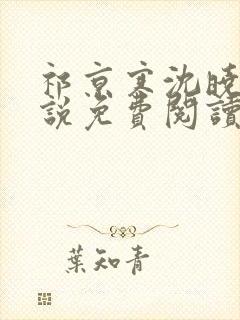 祁京寒沈曉
說免費閱讀
葉知青